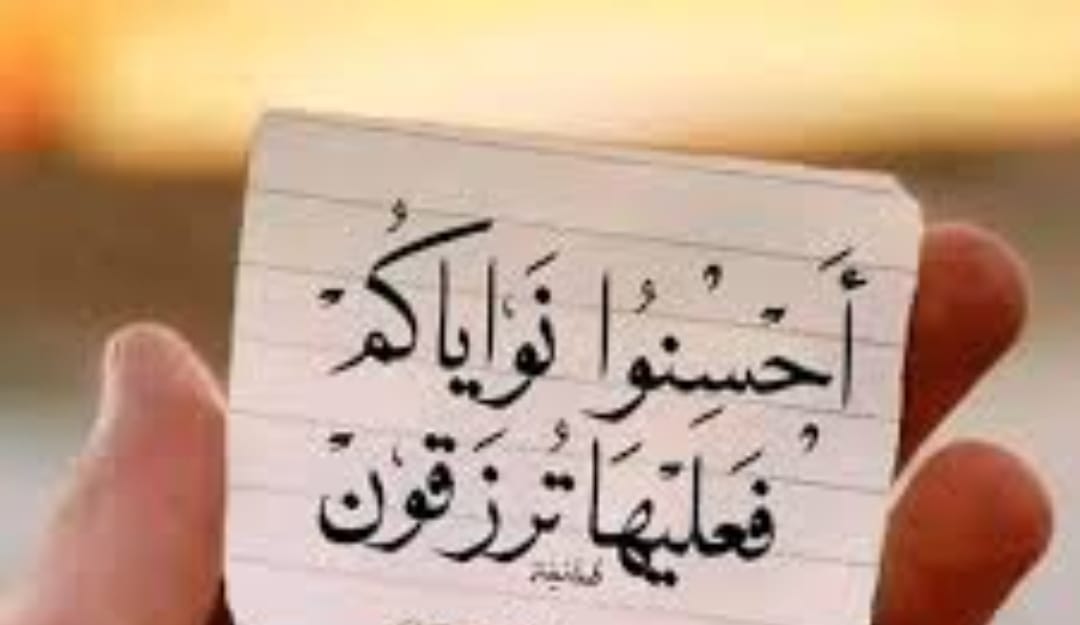 أَحْسِنُوا نَوَايَاكُمْ
فَعَلَيْهَا تُرزَقُونْ